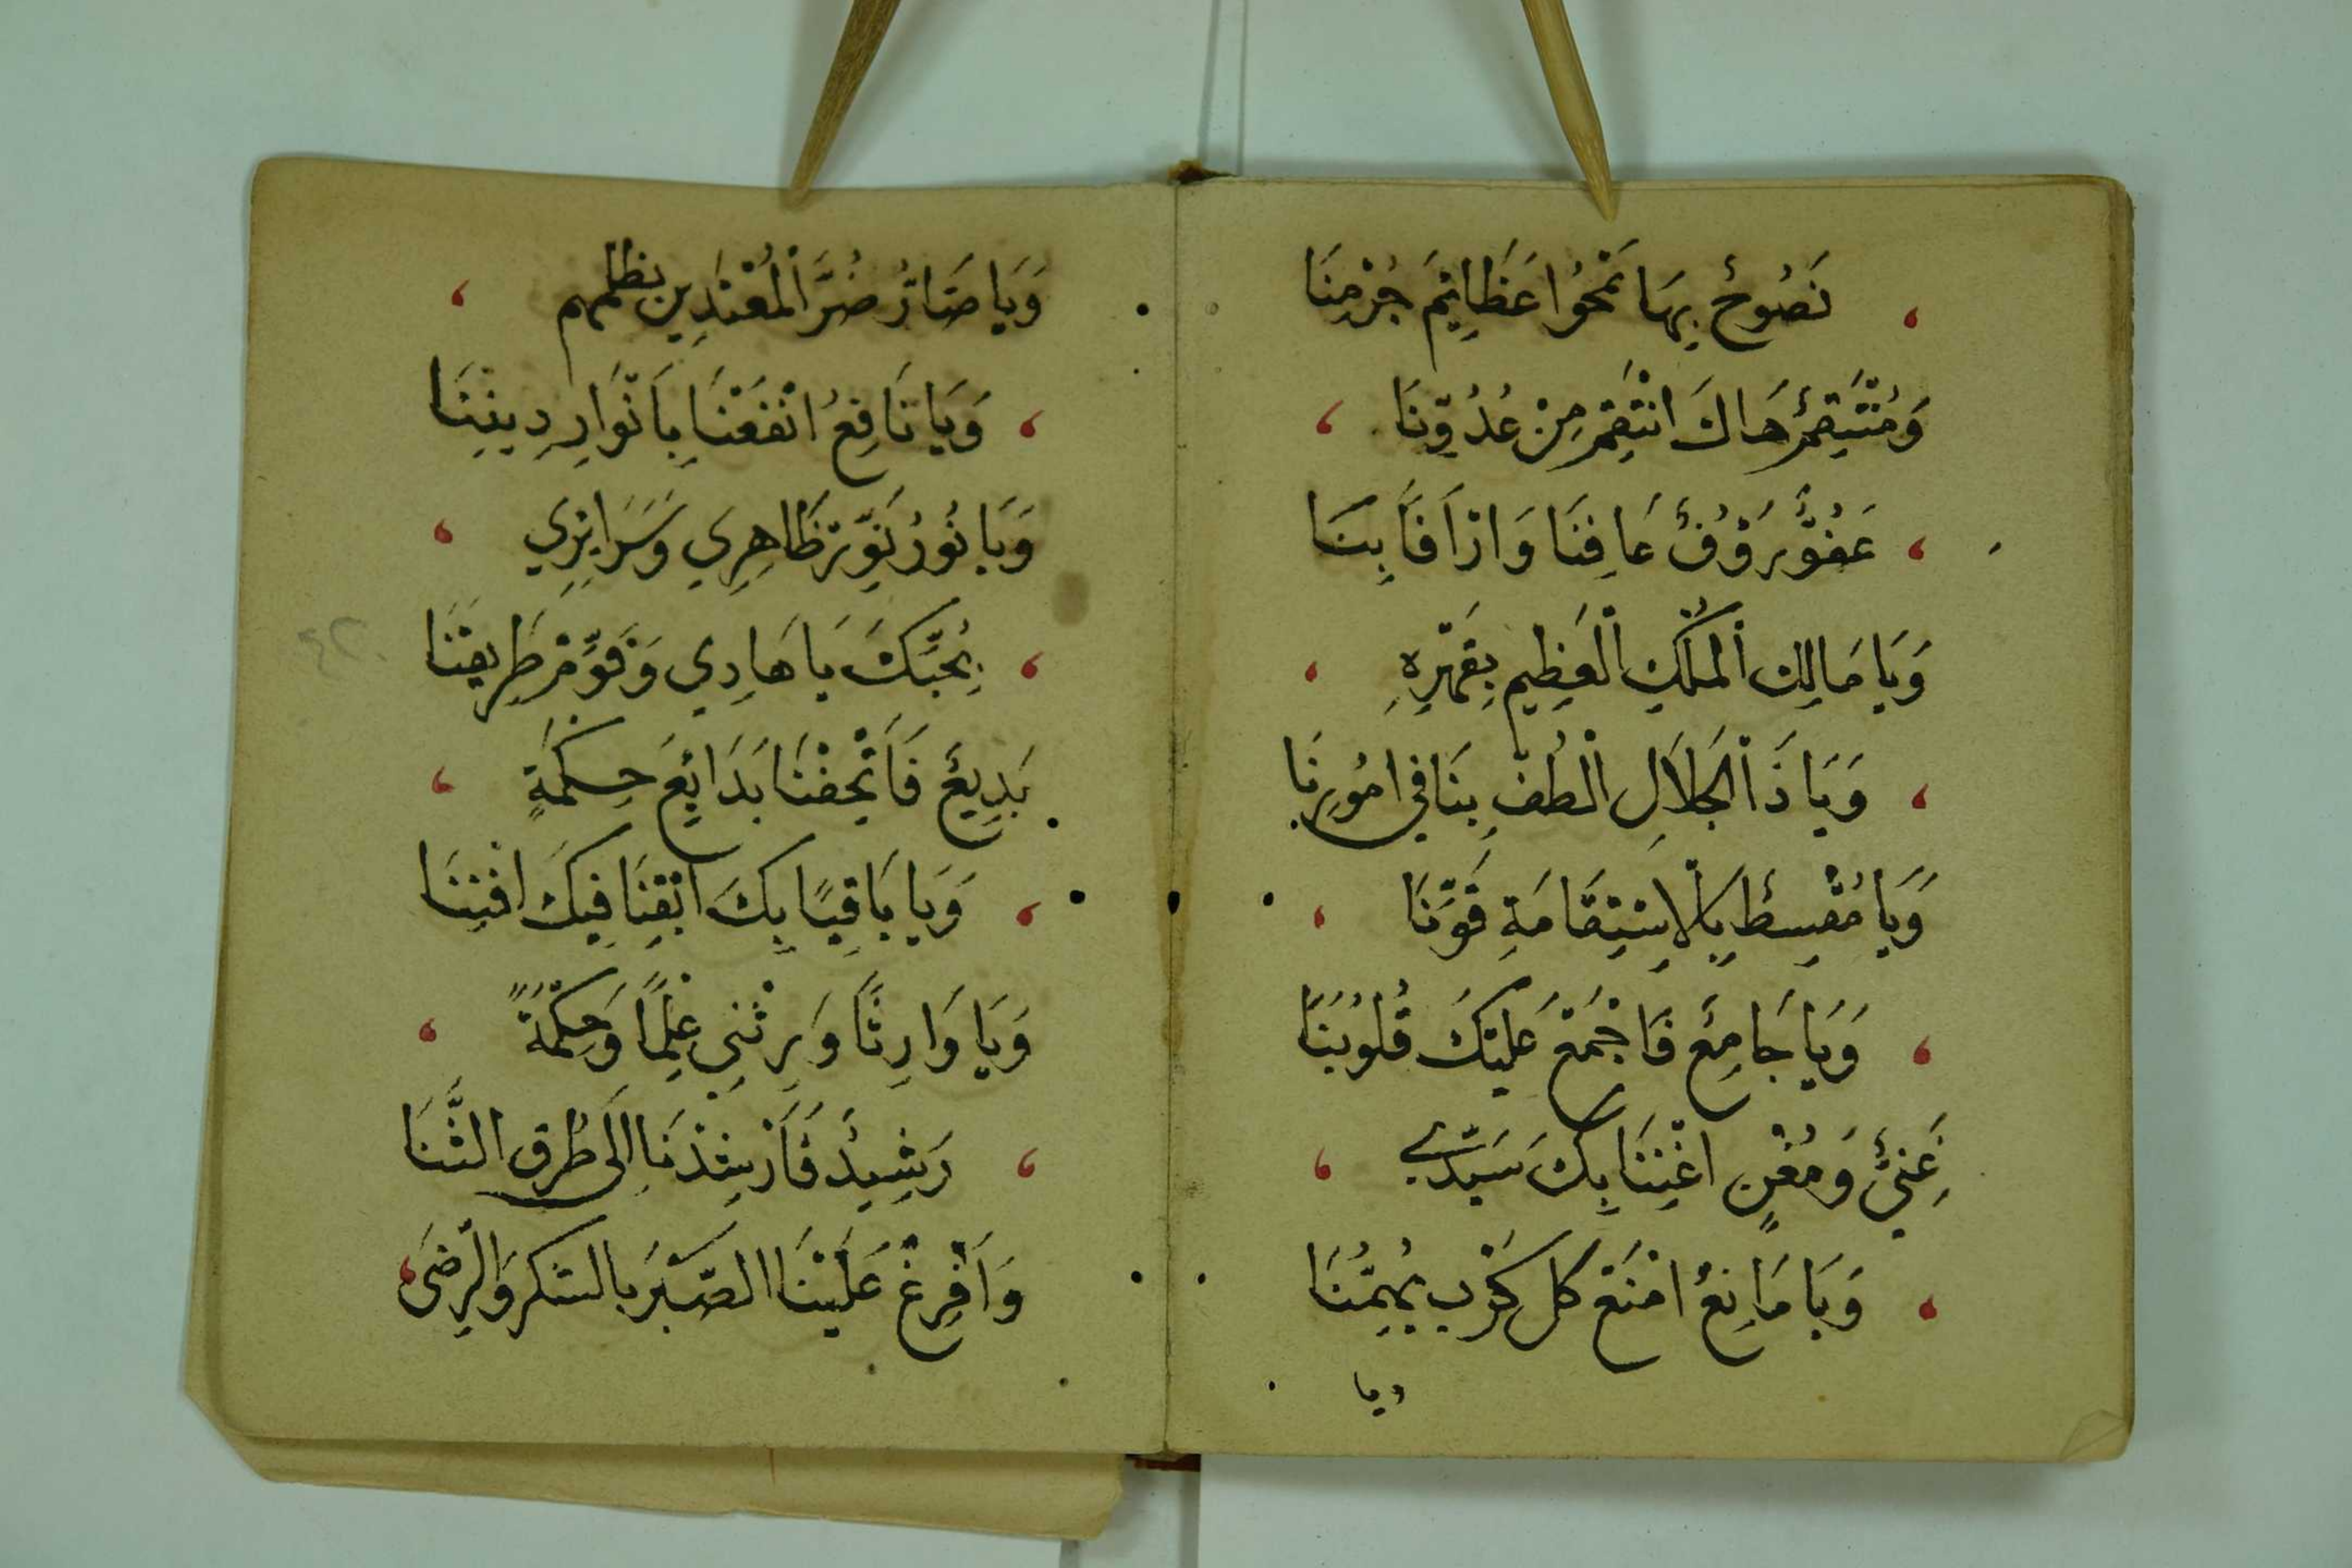 نَصُوحٌ بِهَا تَمْحُوا عَظَايِمَ جُرْمِنَا
وَمُنْتَقِمٌ هَاكَ انْتَقِمْ مِنْ عُدُوِّنَا
عَفُوٌّ رَؤُفٌ عَافِنَا وَارْأَفَابِنَا
وَيَا مَالِكَ الْمُلْكِ الْعَظِيمِ بِقَهْرِهِ
وَيَا ذَا الْجَلَالِ الْطُفْ بِنَا فِي امُورِنَا
وَيَا مُقْسِطٌ بِالْاِسْتِقَامَةِ قَوِّنَا
وَيَا جَامِعٌ فَاجْمَعْ عَلَيْكَ قُلُوبَنَا
غَنِيٌّ وَمُغْنٍ اغْنِنَا بِكَ سَيِّدِي
وَيَا مَانِعٌ امْنَعْ كل كَرْبٍ يُهِمُّنَا
ويا
وَيَا ضَارُّ ضُرَّ الْمُعْتَدِين بظلمهم
وَيَا نَافِعُ انْفَعْنَا بِأَنْوَارِ دِينِنَا
وَيَا نُورُ نَوِّرْ ظَاهِرِي وَسَرَايِرِي
بِحُبِّكَ يَا هَادِي وَقَوِّمْ طَرِيقَنَا
بَدِيعٌ فَأَتْحِفْنَا بَدَايِعَ حِكْمَةٍ
وَيَا بَاقِيًا بِكَ ابْقِنَا فِيكَ افْنِنَا
وَيَا وَارِثًا وَرِثْنِي عِلْمًا وَحِكْمَةً
رَشِيدٌ فَأَرْشِدْنَا اِلَى طُرقِ الثَّنَا
وَأَفْرِغْ عَلَيْنَا الصَّبْرَ بالشكر وَالرِّضَى
٤٢